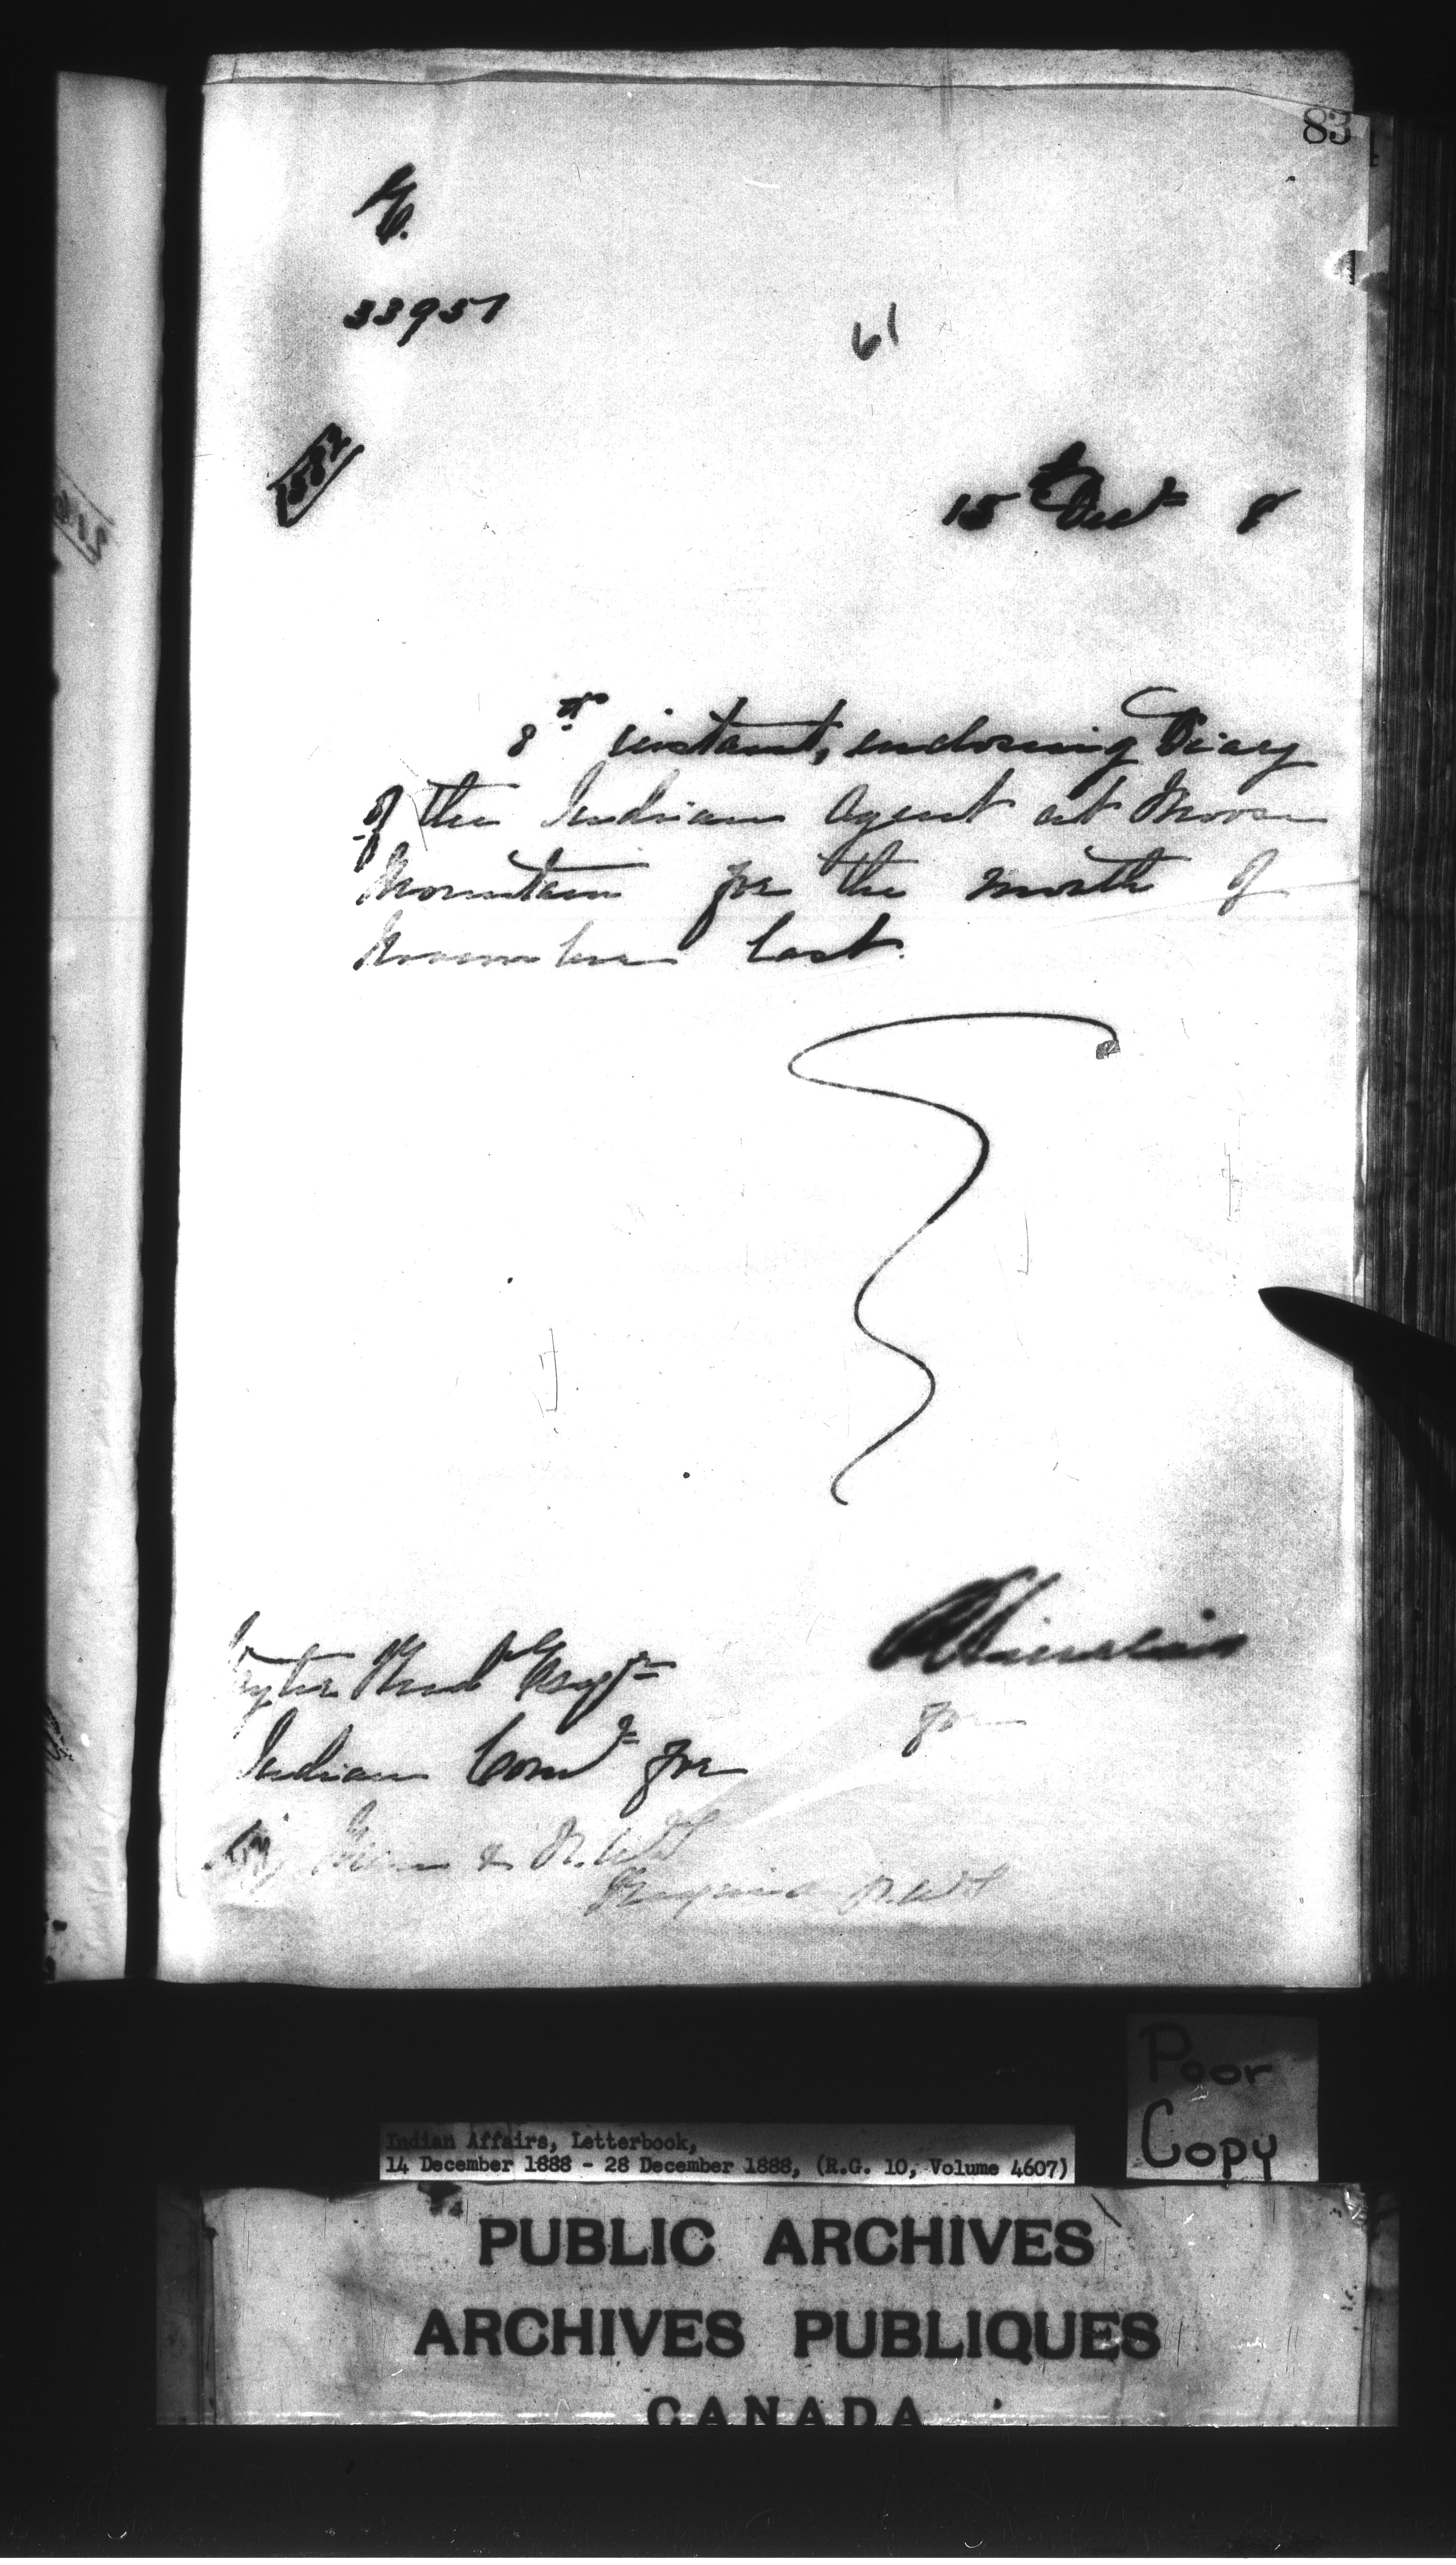 83
33957
61
1582
15th Dec 8
8th instant, enclosing Diary
of the Indian Agent at Moose
Mountain for the month of
November last.
Hayter Reed Esqre
RSinclair
for
Indian Comr for
Man & N.W.T
Regina N.W.T
Poor
Copy
Indian Affairs, Letterbook,
14 December 1888 - 28 December 1888, (R.G. 10, Volume 4607)
PUBLIC ARCHIVES
ARCHIVES PUBLIQUES
CANADA